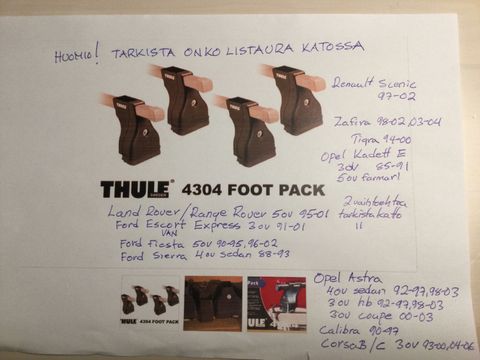 HUOMIO! TARKISTA ONKO LISTAURA KATOSSA
THULE
THULE
THULE
THULE
Renault Scenic
97-02
Zafira 98-02,03-04
Tigra 94-00
Opel Kadett E
3ov 85-91
5ov farmari
THULE SWEDEN 4304 FOOT PACK
2 vaihtoehtoa
tarkista katto
!!
Land Rover/Range Rover 5ov 95-01
Ford Escort Express 3ov 91-01
VAN
Ford Fiesta 5ov 90-95,96-02
Ford Sierra 4ov sedan 88-93
Opel Astra
4ov sedan 92-97,98-03
3ov hb 92-97,98-03
3ov coupe 00-03
Calibra 90-97
Corsa B/C 3ov 93-00,04-06
THULE 4304 FOOT PACK
Pack
THULE